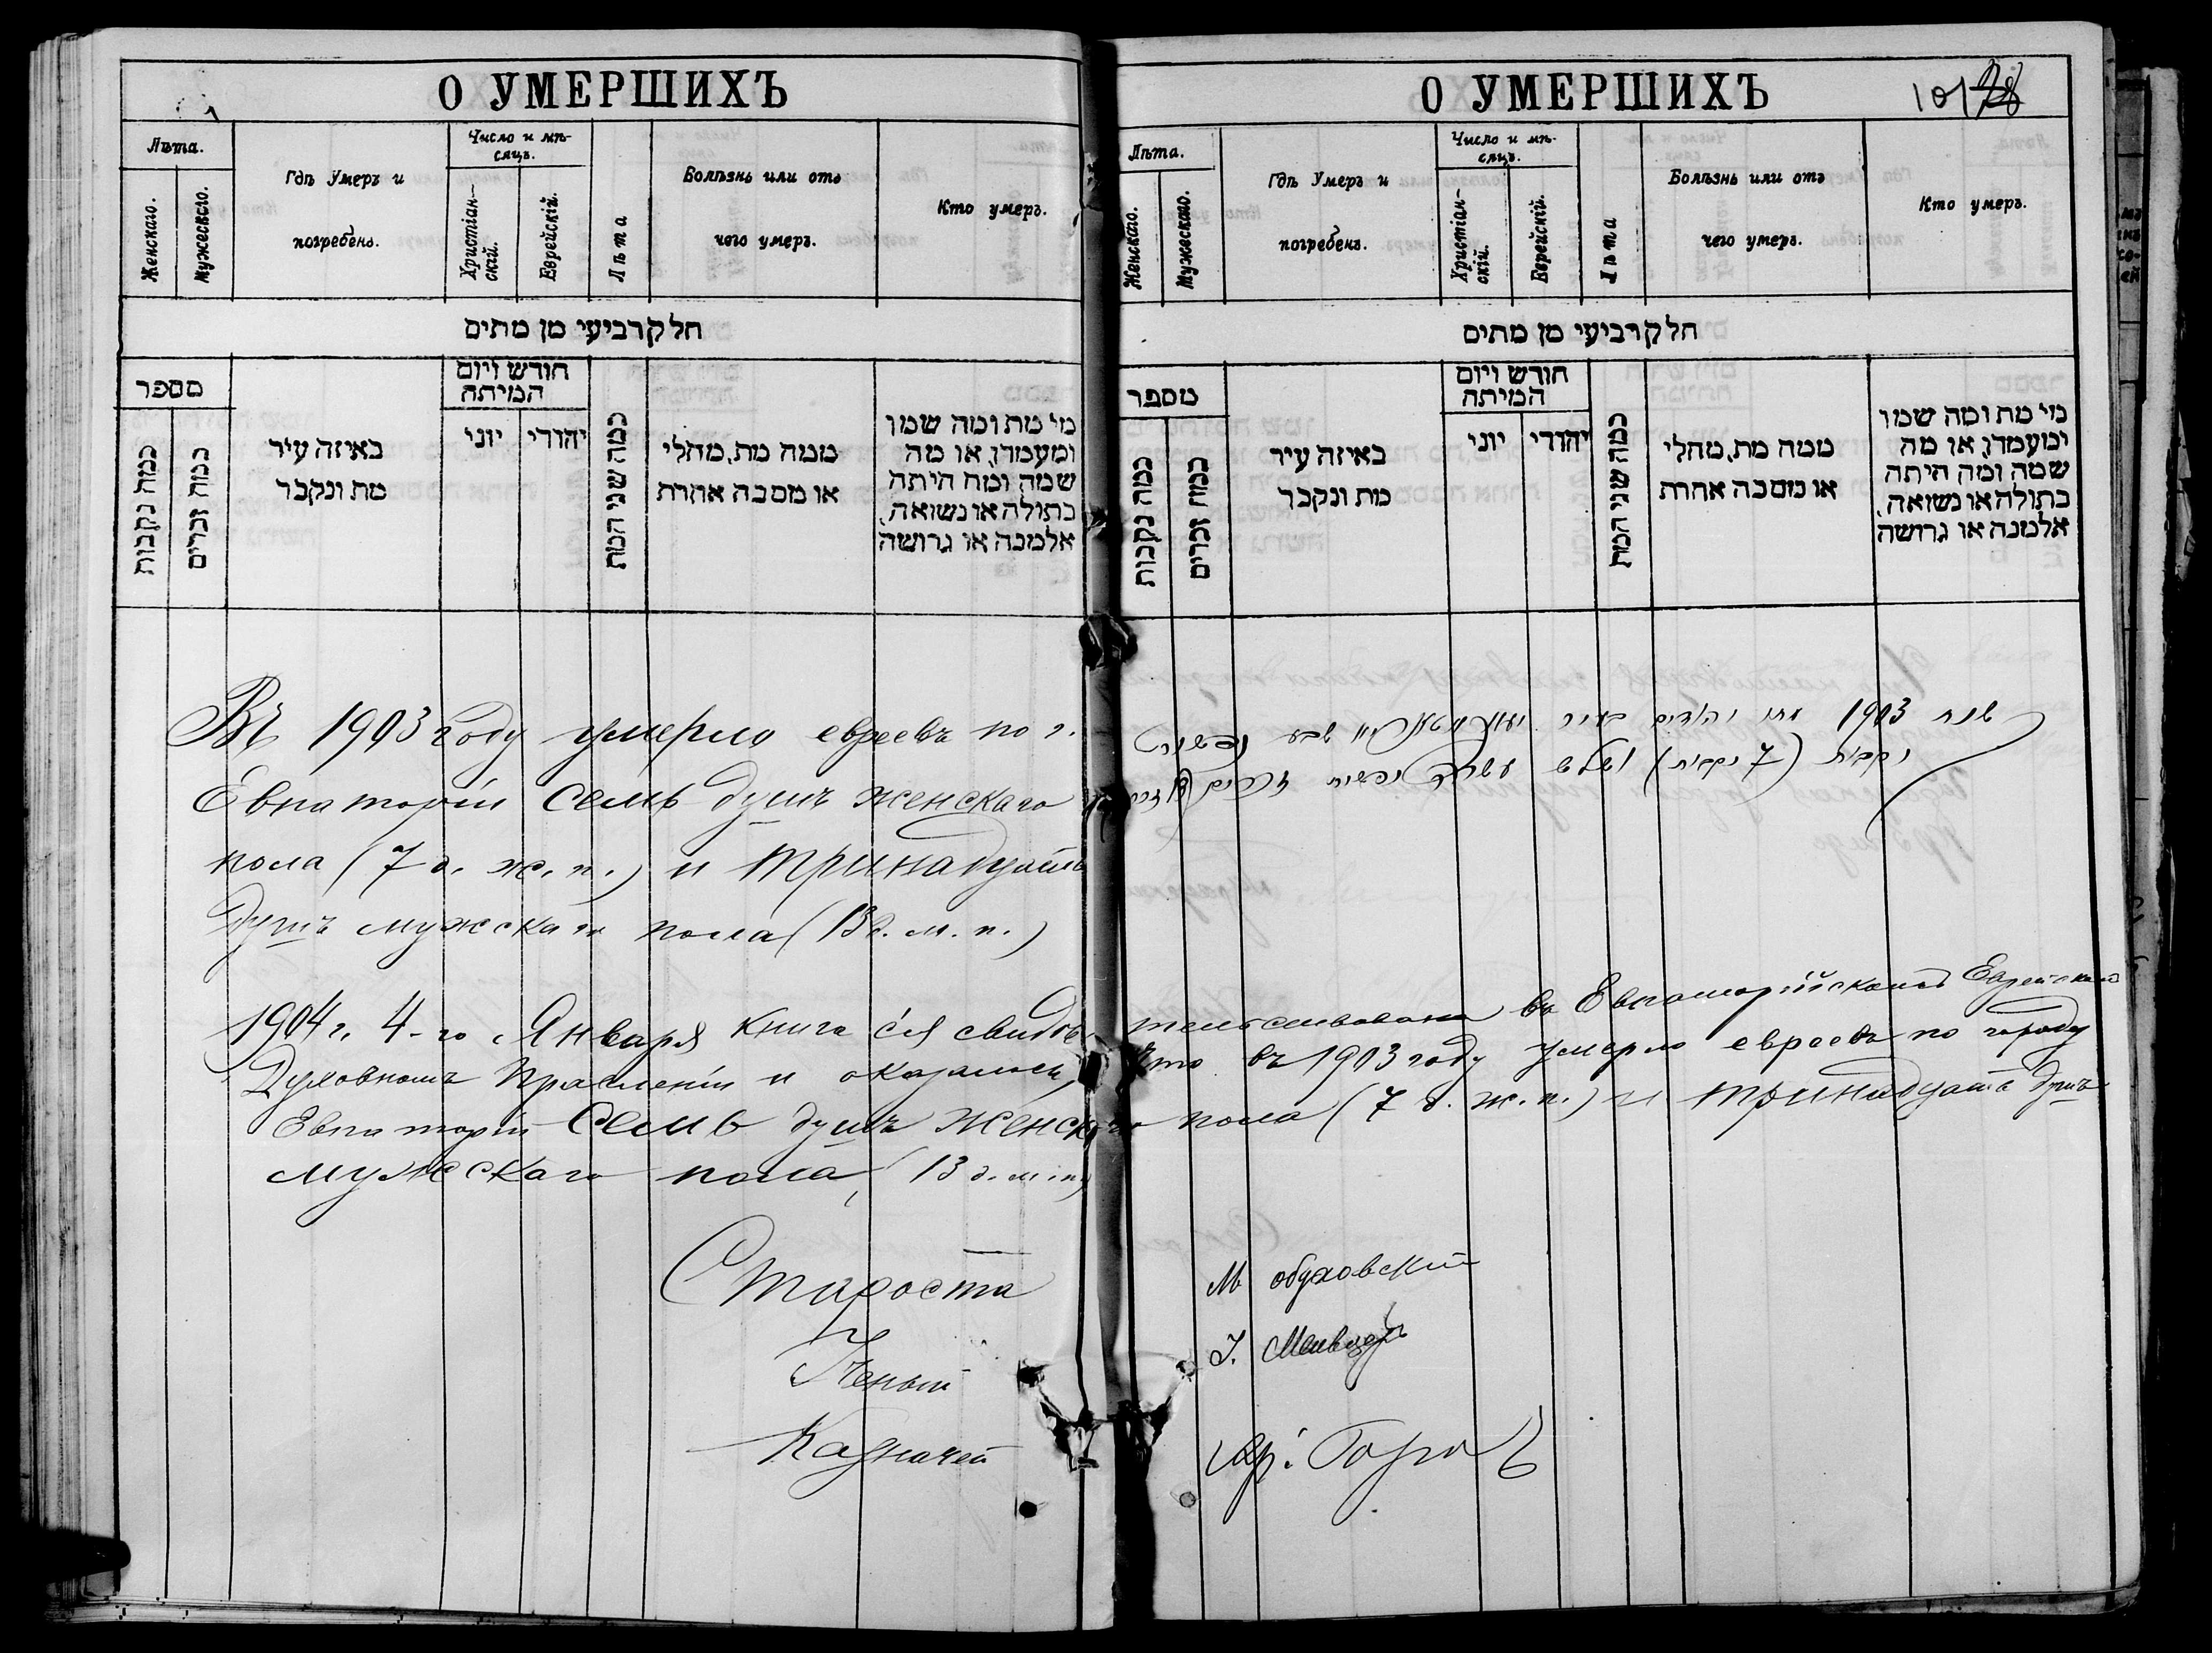 О УМЕРШИХЪ
Лѣта.
Женскаго.
Мужескаго.
Гдѣ Умеръ и
погребенъ.
Число и мѣ-
сяцъ.
Христіан-
скій.
Еврейскій.
Лѣта
Болѣзнь или отъ
чего умеръ.
Кто умеръ.
חלק רביעי מן מתים
מספר
כמה נקבות
כמה זכרים
באיזה עיר
מת ונקבר
חודש ויום
המיתה
יוני
יהודי
כמה שני המת
ממה מת, מחלי
או מסבה אחרת
מי מת ומה שמו
ומעמדו, או מה
שמה ומה היתה
בתולה או נשואה,
אלמנה או גרושה
Въ 1903 году умерло евреевъ по г.
Евпаторіи семь душъ женскаго
пола (7 д. ж. п.) и тринадцать
душъ мужскаго пола (13 д. м. п.)
О УМЕРШИХЪ
101 78
Лѣта.
Женскаго.
Мужескаго.
Гдѣ Умеръ и
погребенъ.
Число и мѣ-
сяцъ.
Христіан-
скій.
Еврейскій.
Лѣта
Болѣзнь или отъ
чего умеръ.
Кто умеръ.
חלק רביעי מן מתים
מספר
כמה נקבות
כמה זכרים
באיזה עיר
מת ונקבר
חודש ויום
המיתה
יוני
יהודי
כמה שני המת
ממה מת, מחלי
או מסבה אחרת
מי מת ומה שמו
ומעמדו, או מה
שמה ומה היתה
בתולה או נשואה,
אלמנה או גרושה
שנת 1903 מתו יהודים בעיר שבע נפשות
נקבות (7 נקבות) ושלש עשרה נפשות זכרים
1904 г. 4-го Января книга сія свидѣтельствована въ Евпаторійскомъ Еврейскомъ
Духовномъ Правленіи и оказалось, что въ 1903 году умерло евреевъ по городу
Евпаторіи семь душъ женскаго пола (7 д. ж. п.) и тринадцать душъ
мужскаго пола (13 д. м. п.)
Староста М Обуховскій
Ученый І.
Казначей